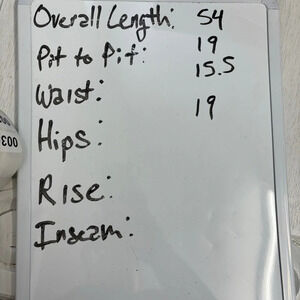 Overall Length: 54
Pit to Pit: 19
Waist: 15.5
Hips: 19
Rise:
Inseam:
003